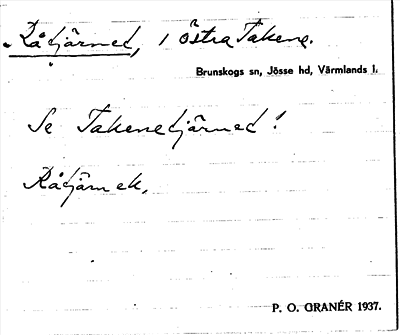 Råtjärned, i Östra Takene.
Brunskogs sn, Jösse hd, Värmlands l.
Se Takenetjärned!
Råtjärn ek.
P. O. GRANÉR 1937.